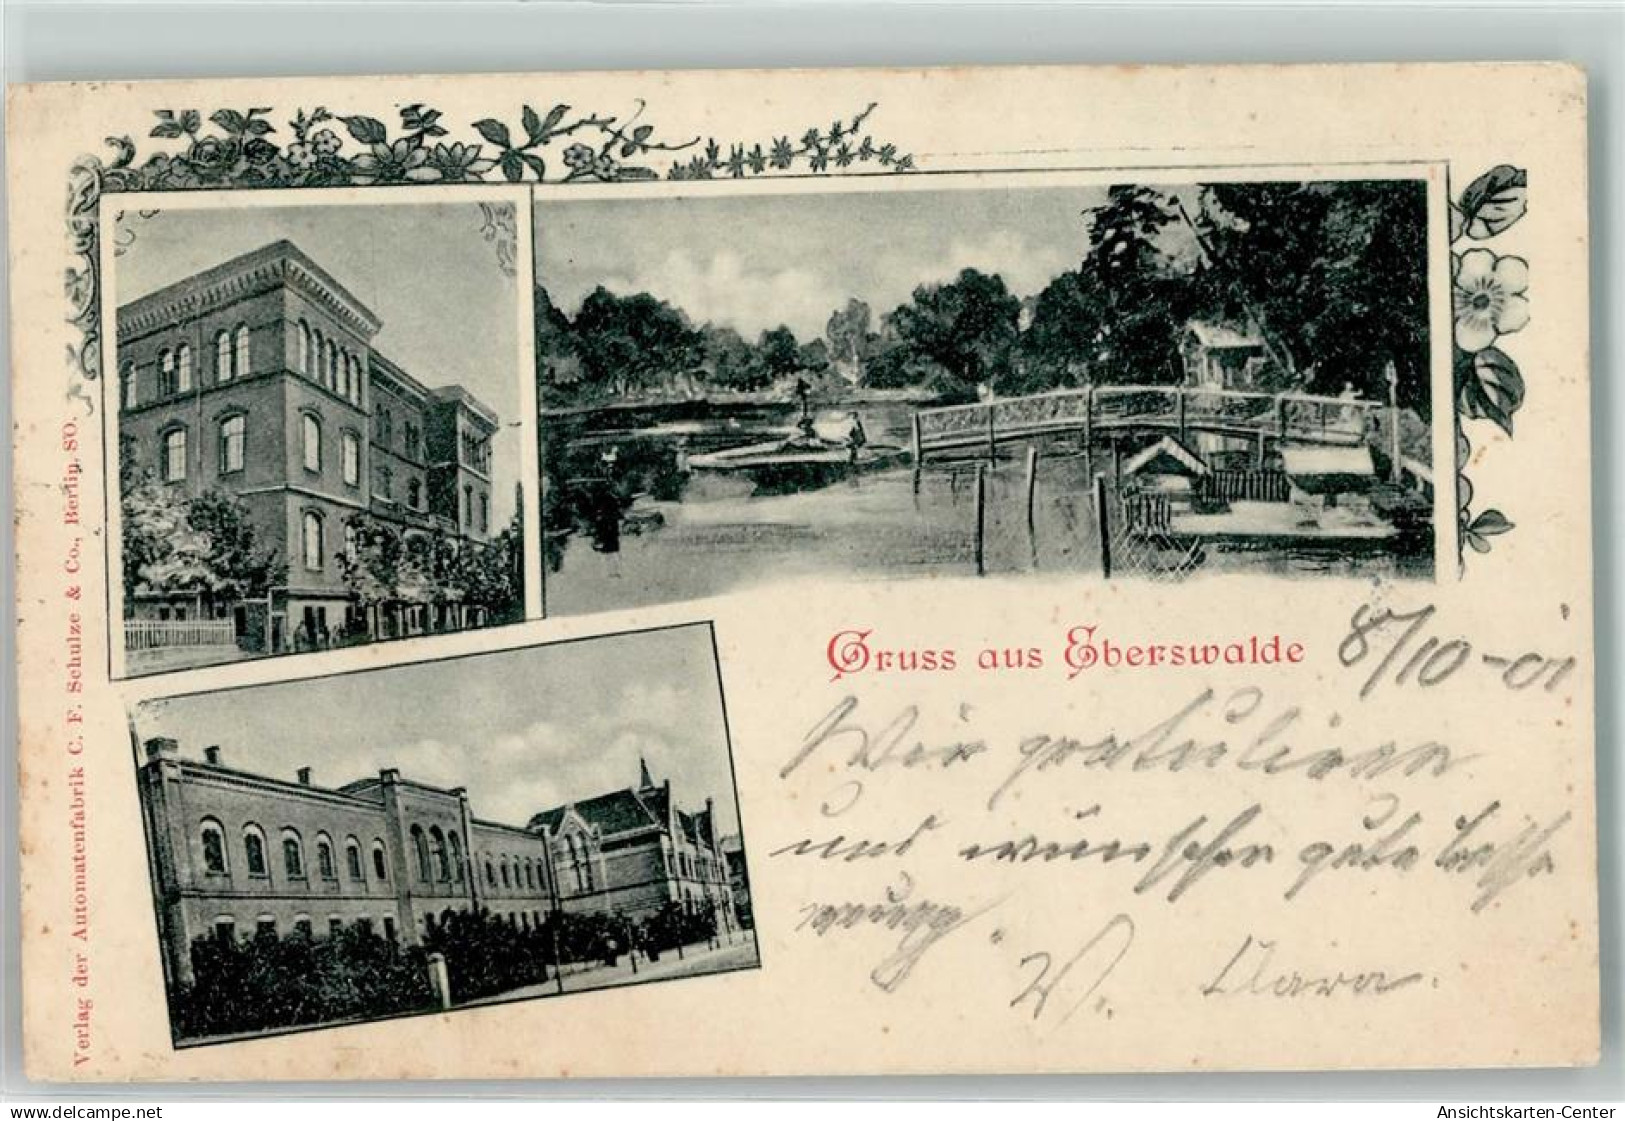 Verlag der Automatenfabrik C. F. Schulze & Co., Berlin, SO.
Gruss aus Eberswalde
8/10-01
Wir gratuliren
und wünschen gute Besse
rung.
W. Clara.
www.delcampe.net
Ansichtskarten-Center